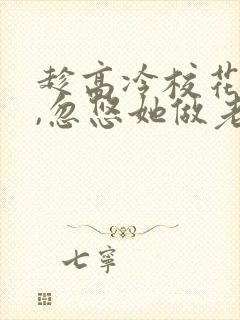 趁高冷校花
,忽悠她做老
七寧